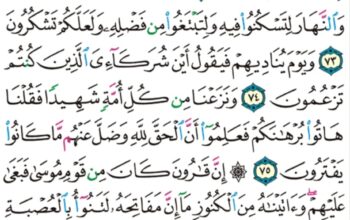 وَٱلنَّهَارَ لِتَسْكُنُوا۟ فِيهِ وَلِتَبْتَغُوا۟ مِن فَضْلِهِۦ وَلَعَلَّكُمْ تَشْكُرُونَ
٧٣ وَيَوْمَ يُنَادِيهِمْ فَيَقُولُ أَيْنَ شُرَكَآءِىَ ٱلَّذِينَ كُنتُمْ
تَزْعُمُونَ ٧٤ وَنَزَعْنَا مِن كُلِّ أُمَّةٍ شَهِيدًا فَقُلْنَا
هَاتُوا۟ بُرْهَٰنَكُمْ فَعَلِمُوٓا۟ أَنَّ ٱلْحَقَّ لِلَّهِ وَضَلَّ عَنْهُم مَّا كَانُوا۟
يَفْتَرُونَ ٧٥ ۞ إِنَّ قَٰرُونَ كَانَ مِن قَوْمِ مُوسَىٰ فَبَغَىٰ
عَلَيْهِمْ ۖ وَءَاتَيْنَٰهُ مِنَ ٱلْكُنُوزِ مَآ إِنَّ مَفَاتِحَهُۥ لَتَنُوٓأُ بِٱلْعُصْبَةِ